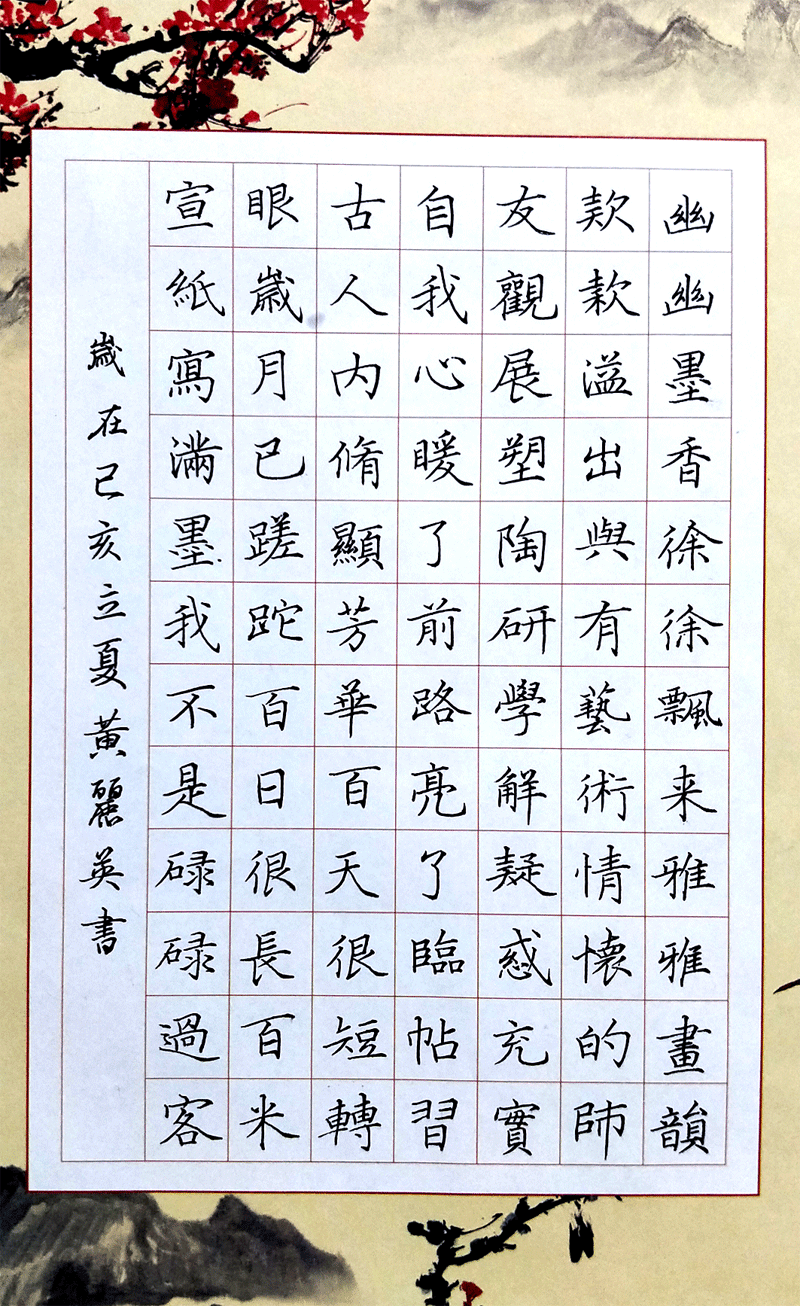 幽幽墨香徐徐飄来雅雅畫韻
款款溢出與有藝術情懷的師
友觀展塑陶研學解疑惑充實
自我心暖了前路亮了臨帖習
古人内脩顯芳華百天很短轉
眼歲月已蹉跎百日很長百米
宣紙寫滿墨我不是碌碌過客
歲在己亥立夏黃麗英書